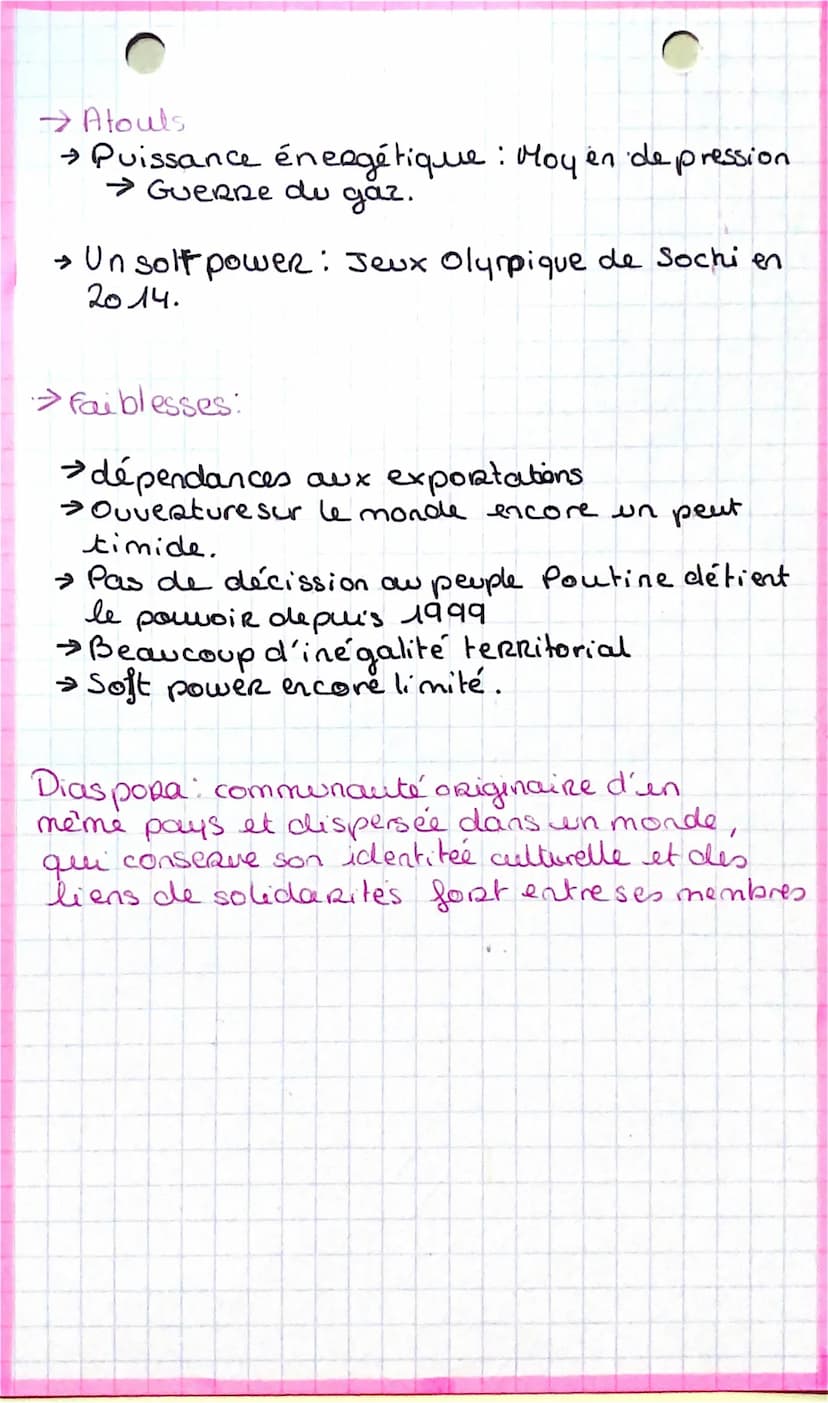 → Atouts
→ Puissance énergétique : Moyen de pression
→ Guerre du gaz.
→ Un solf power : Jeux Olympique de Sochi en
2014.
→ Faiblesses :
→ dépendances aux exportations
→ Ouverture sur le monde encore un peut
timide.
→ Pas de décission au peuple Poutine détient
le pouvoir depuis 1999
→ Beaucoup d'inégalité territorial
→ Soft power encore limité.
Diaspora : communauté originaire d'un
même pays et dispersée dans un monde,
qui conserve son identiteé culturelle et des
liens de solidarités fort entre ses membres